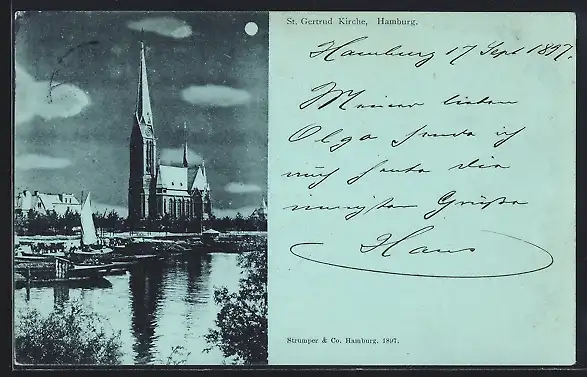 St. Gertrud Kirche, Hamburg.
Hamburg 17 Sept 1897.
Meiner lieben
Olga sende ich
auch heute die
innigsten Grüße
Hans
Strumper & Co. Hamburg. 1897.